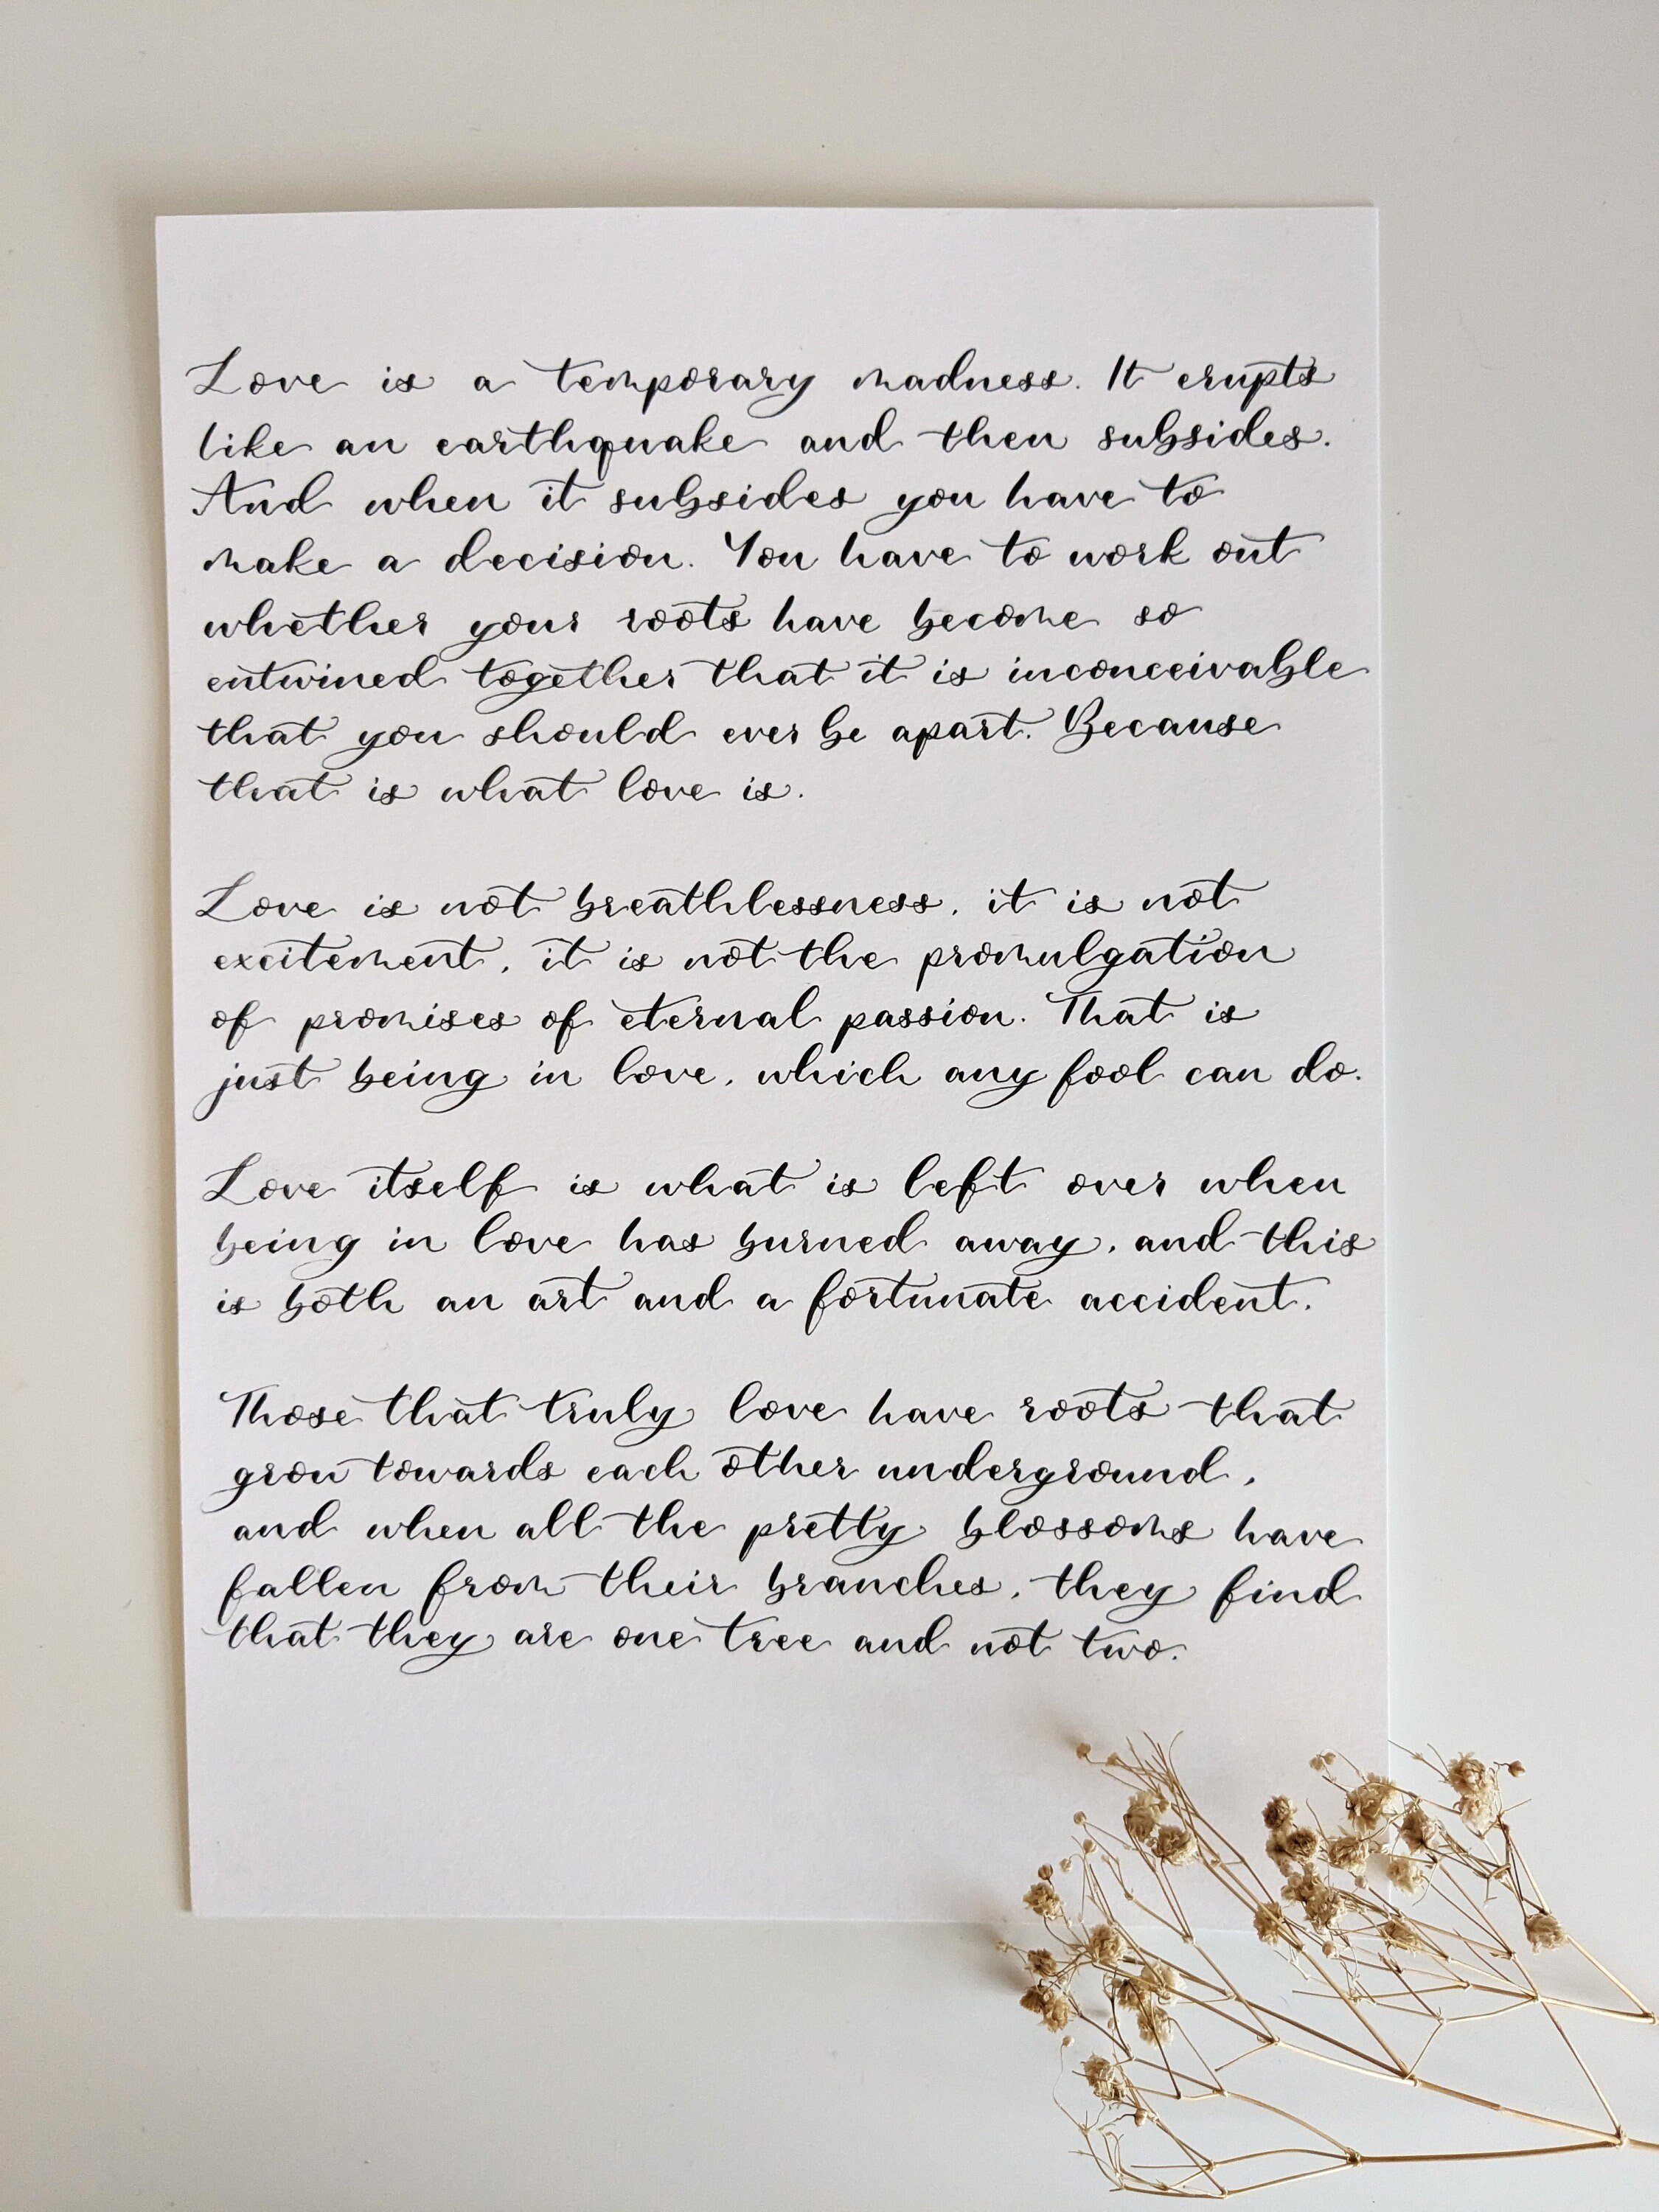 Love is a temporary madness. It erupts
like an earthquake and then subsides.
And when it subsides you have to
make a decision. You have to work out
whether your roots have become so
entwined together that it is inconceivable
that you should ever be apart. Because
that is what love is.
Love is not breathlessness, it is not
excitement, it is not the promulgation
of promises of eternal passion. That is
just being in love, which any fool can do.
Love itself is what is left over when
being in love has burned away, and this
is both an art and a fortunate accident.
Those that truly love have roots that
grow towards each other underground,
and when all the pretty blossoms have
fallen from their branches, they find
that they are one tree and not two.